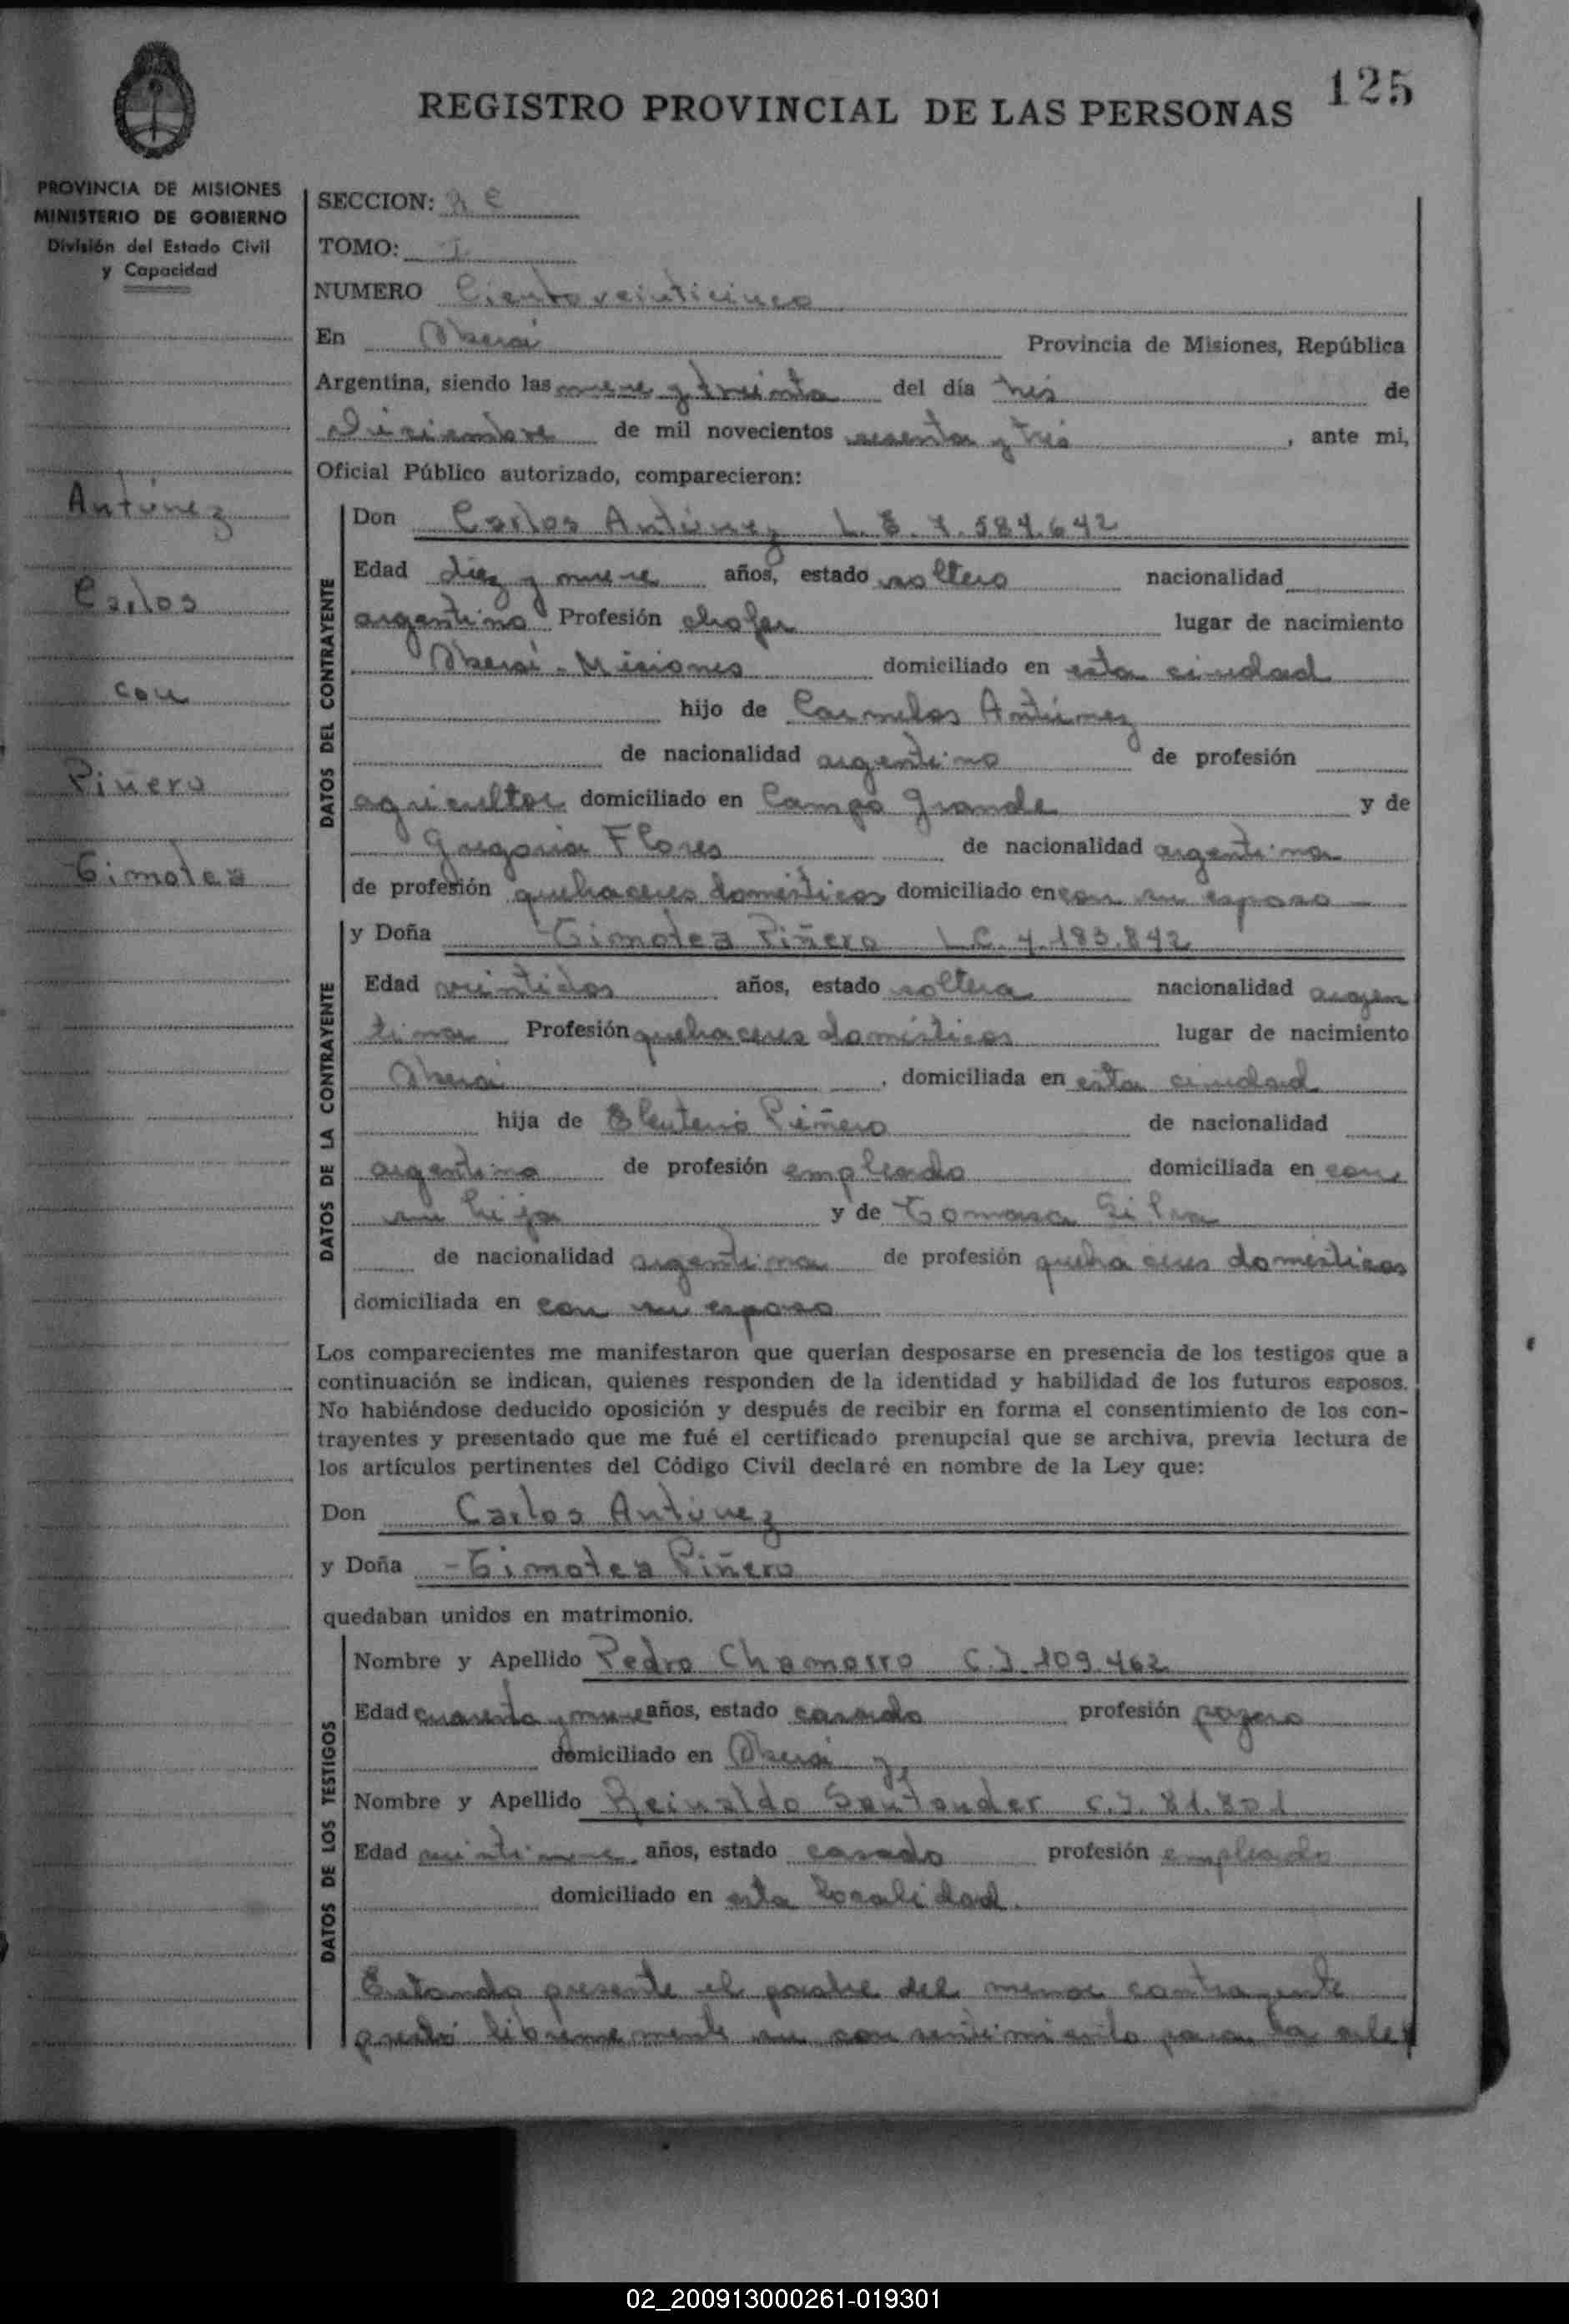 125
REGISTRO PROVINCIAL DE LAS PERSONAS
PROVINCIA DE MISIONES
MINISTERIO DE GOBIERNO
División del Estado Civil
y Capacidad
SECCION:
TOMO: I
NUMERO Ciento veinticinco
En Oberá Provincia de Misiones, República
Argentina, siendo las nueve y treinta del día tres de
Diciembre de mil novecientos sesenta y tres, ante mi,
Oficial Público autorizado, comparecieron:
Antúnez
Carlos
con
Piñero
Timotea
DATOS DEL CONTRAYENTE
Don Carlos Antúnez L. E. 7.584.642
Edad diez y nueve años, estado soltero nacionalidad
argentino Profesión chofer lugar de nacimiento
Oberá - Misiones domiciliado en esta ciudad
hijo de Carmelos Antúnez
de nacionalidad argentino de profesión
agricultor domiciliado en Campo Grande y de
Gregoria Flores de nacionalidad argentina
de profesión quehaceres domésticos domiciliado en con su esposo
DATOS DE LA CONTRAYENTE
y Doña Timotea Piñero L.C. 4.183.842
Edad veintidos años, estado soltera nacionalidad argen
tina Profesión quehaceres domésticos lugar de nacimiento
Oberá, domiciliada en esta ciudad
hija de Eleuterio Piñero de nacionalidad
argentino de profesión empleado domiciliada en con
su hija y de Tomasa Silva
de nacionalidad argentina de profesión quehaceres domésticos
domiciliada en con su esposo
Los comparecientes me manifestaron que querían desposarse en presencia de los testigos que a
continuación se indican, quienes responden de la identidad y habilidad de los futuros esposos.
No habiéndose deducido oposición y después de recibir en forma el consentimiento de los con-
trayentes y presentado que me fué el certificado prenupcial que se archiva, previa lectura de
los artículos pertinentes del Código Civil declaré en nombre de la Ley que:
Don Carlos Antúnez
y Doña Timotea Piñero
quedaban unidos en matrimonio.
DATOS DE LOS TESTIGOS
Nombre y Apellido Pedro Chamorro C.I. 109.462
Edad cuarenta y nueve años, estado casado profesión pozero
domiciliado en Oberá y
Nombre y Apellido Reinaldo Santander C.I. 81.801
Edad veintinueve años, estado casado profesión empleado
domiciliado en esta localidad.
Estando presente el padre del menor contrayente
prestó libremente su consentimiento para la
02_200913000261-019301